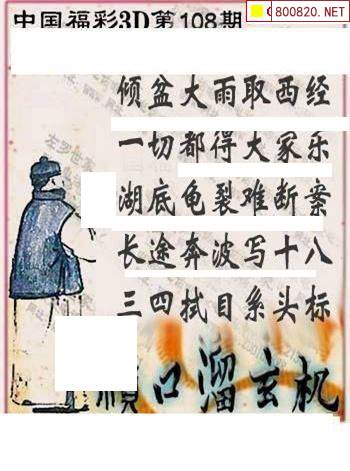 中国福彩3D第108期
800820.NET
倾盆大雨取西经
一切都得大家乐
湖底龟裂难断案
长途奔波写十八
三四拭目系头标
顺口溜玄机